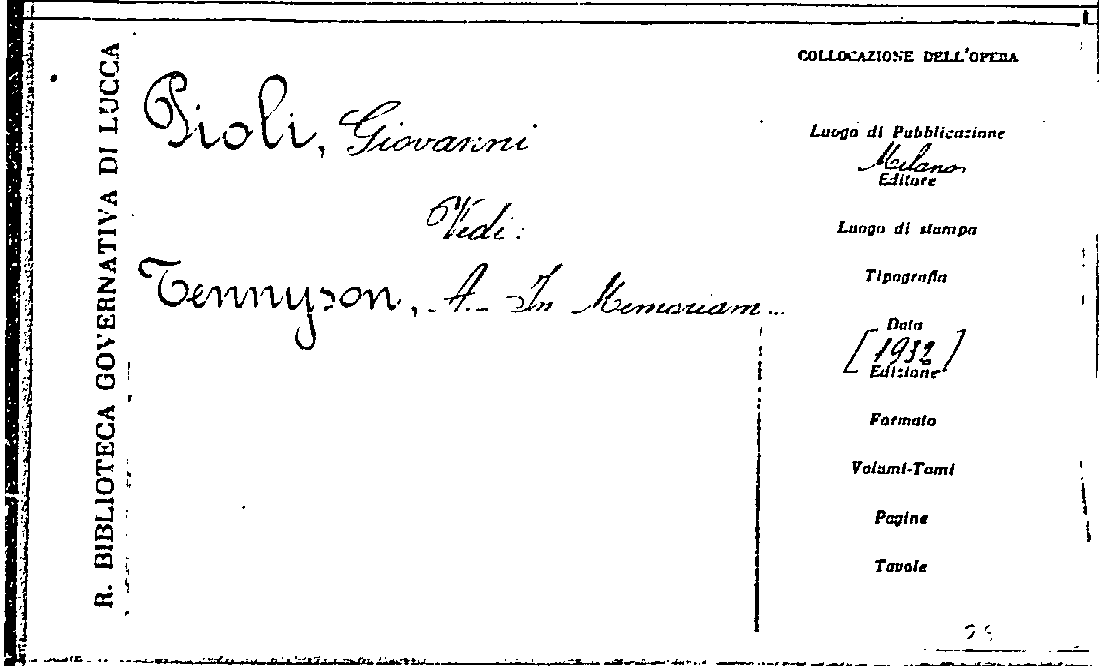 R. BIBLIOTECA GOVERNATIVA DI LUCCA
Pioli, Giovanni
Vedi:
Tennyson, A. - In Memoriam...
COLLOCAZIONE DELL'OPERA
Luogo di Pubblicazione
Milano
Editore
Luogo di stampa
Tipografia
Data
[1932]
Edizione
Formato
Volumi-Tomi
Pagine
Tavole